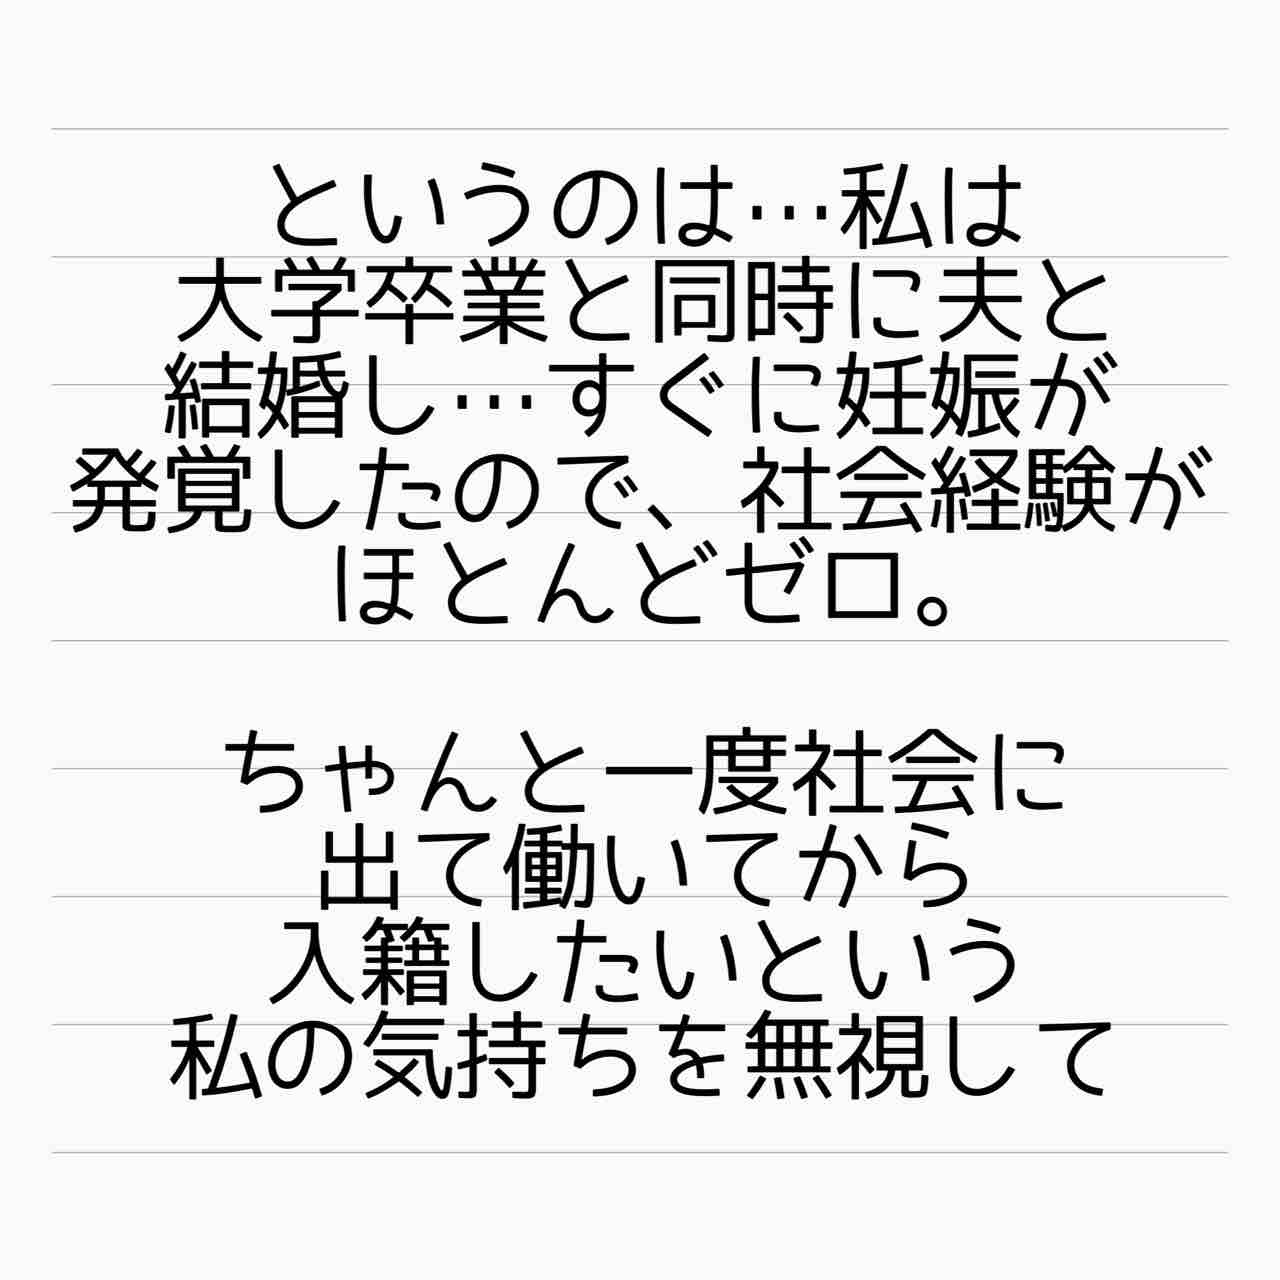 というのは…私は
大学卒業と同時に夫と
結婚し…すぐに妊娠が
発覚したので、社会経験が
ほとんどゼロ。
ちゃんと一度社会に
出て働いてから
入籍したいという
私の気持ちを無視して